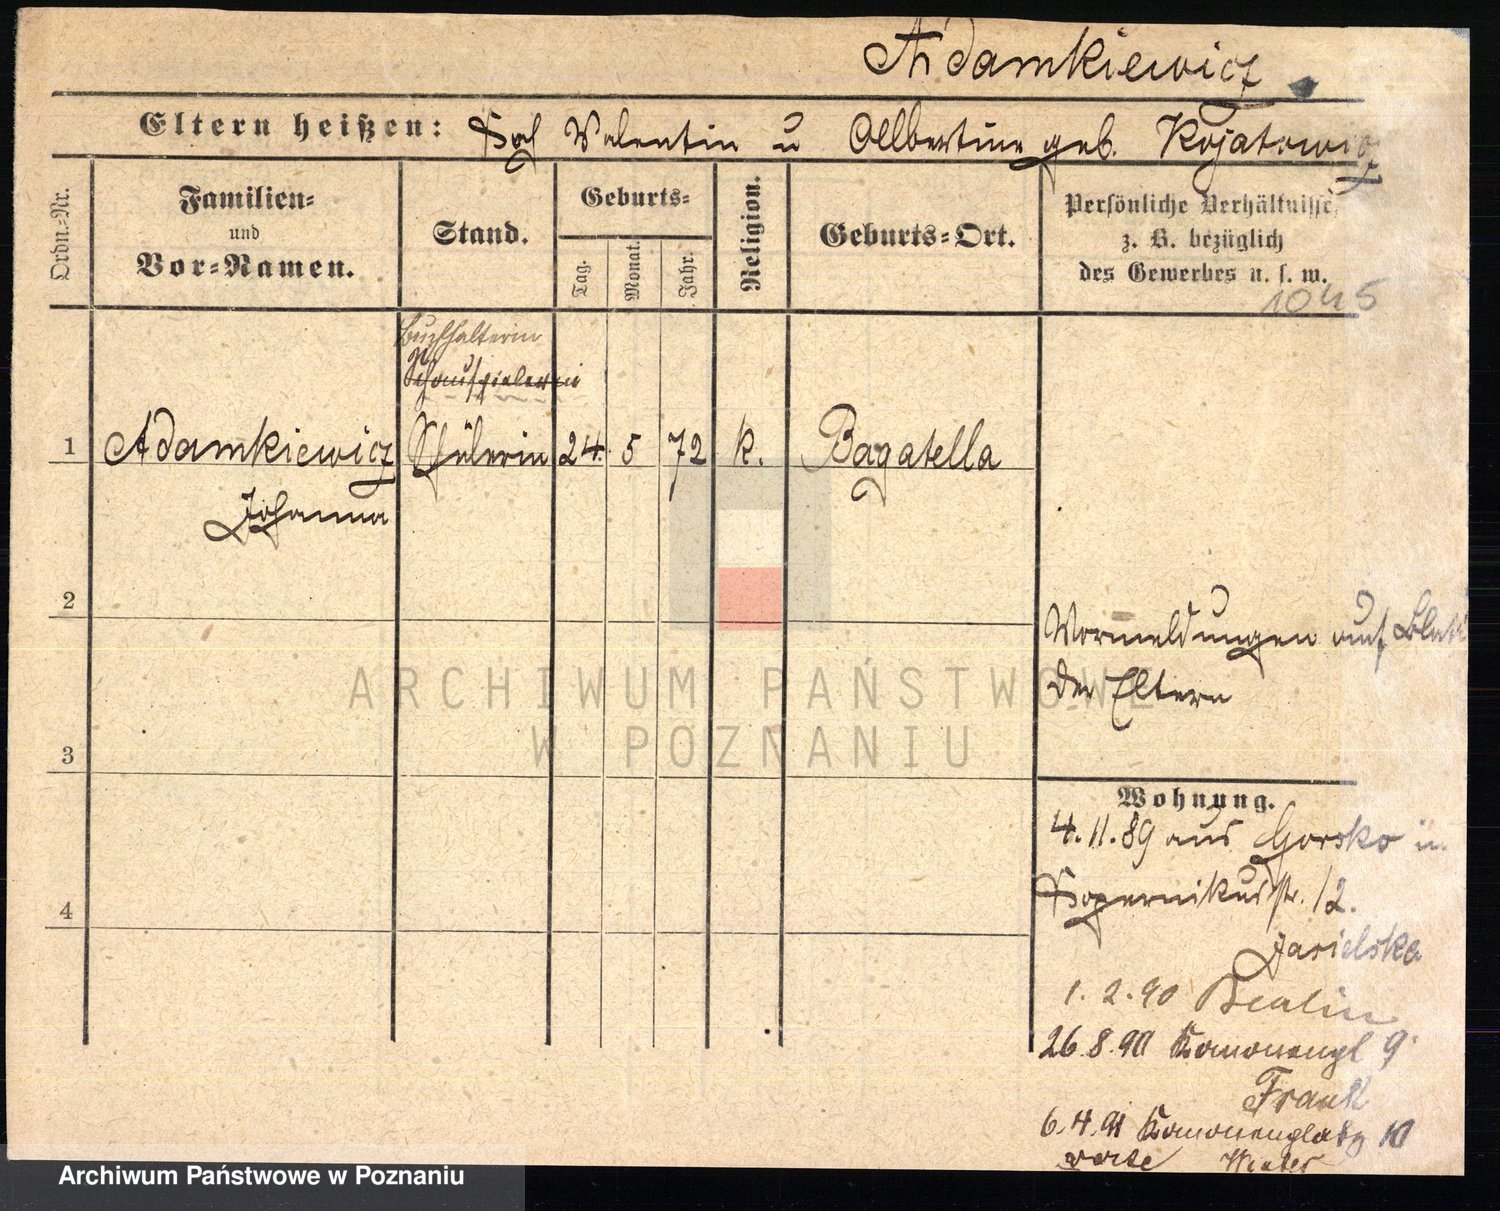 Adamkiewicz
Eltern heißen: Valentin u Albertine geb. Kojatowicz
Ordn.-Nr.
Familien-
und
Vor-Namen.
Stand.
Geburts-
Tag.
Monat.
Jahr.
Religion.
Geburts-Ort.
Persönliche Verhältnisse,
z. B. bezüglich
des Gewerbes u. s. w.
1045
Buchhalterin
Schauspielerin
1 Adamkiewicz Schülerin 24. 5 72 k. Bagatella
Johanna
2
Vormeldungen auf Blatt
der Eltern
3
Wohnung.
4.11.89 aus Gorsko in
Kopernikusstr. 12.
4
Jasielska
1.2.90 Berlin
26.8.90 Kanonenpl 9
Frank
6.4.91 Kanonenplatz 10
Winter
ARCHIWUM PAŃSTWOWE
W POZNANIU
Archiwum Państwowe w Poznaniu